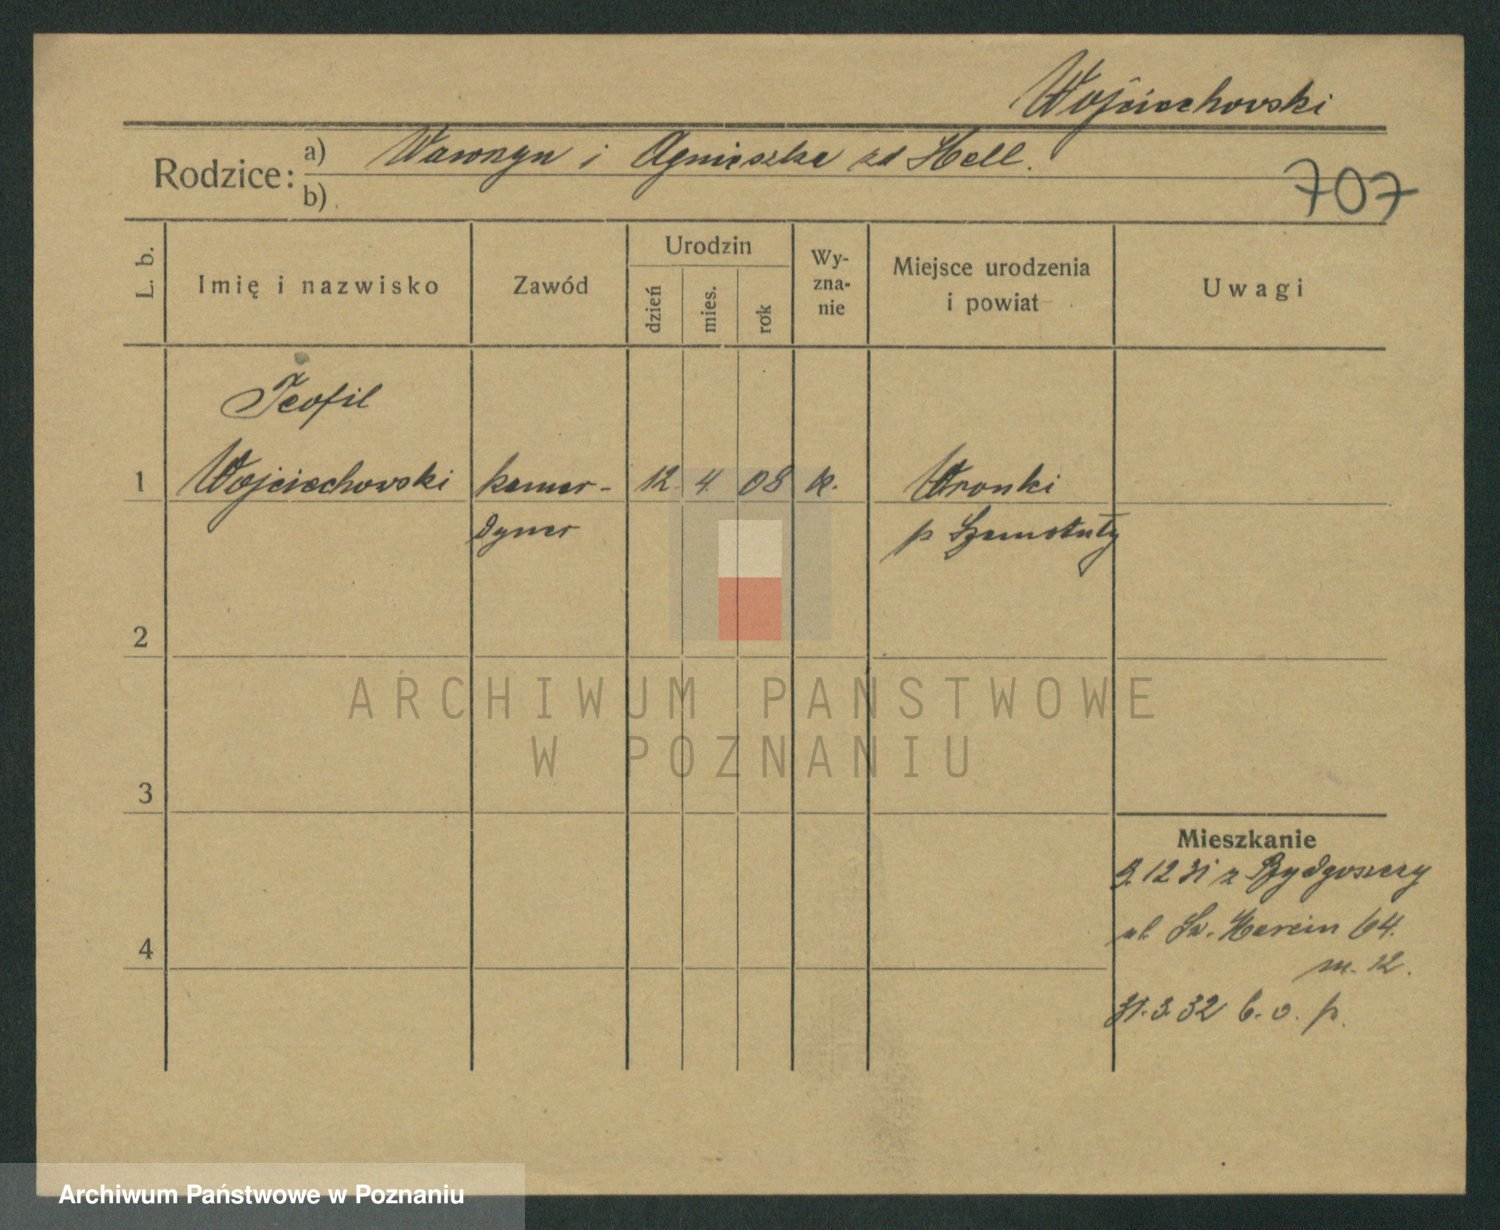 Wojciechowski
Rodzice: a) Wawrzyn i Agnieszka zd Hell.
b)
707
L. b.
Imię i nazwisko
Zawód
Urodzin
dzień
mies.
rok
Wy-
zna-
nie
Miejsce urodzenia
i powiat
Uwagi
Teofil
1 Wojciechowski kamer- 12. 4. 08 k. Wronki
dyner p Szamotuły
2
3
4
Mieszkanie
9.12 31 z Bydgoszczy
ul. Św. Marcin 64.
m. 12.
31.3.32 b. o. p.
ARCHIWUM PAŃSTWOWE
W POZNANIU
Archiwum Państwowe w Poznaniu